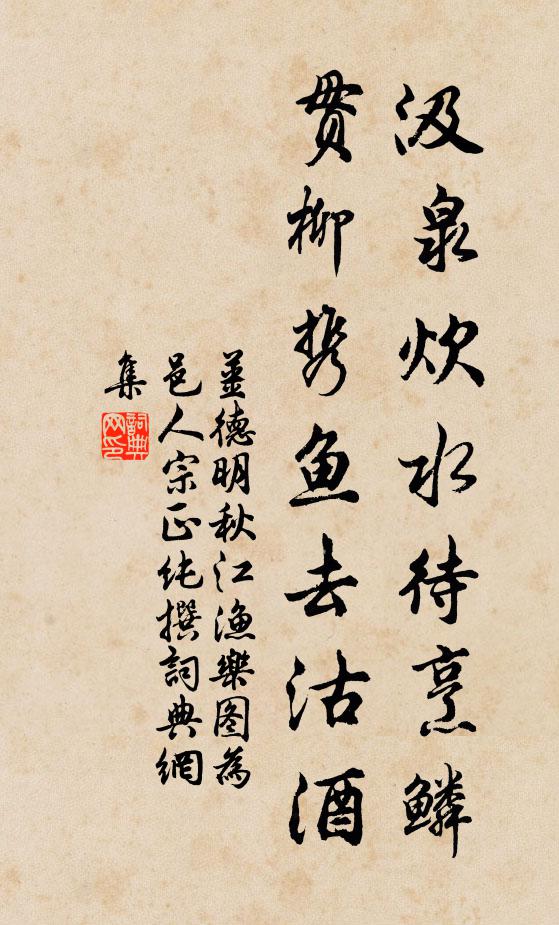 汲泉炊水待烹鳞
贯柳携鱼去沽酒
薑德明秋江渔樂图為
邑人宗正纯撰詞典網
集
詞典
网印